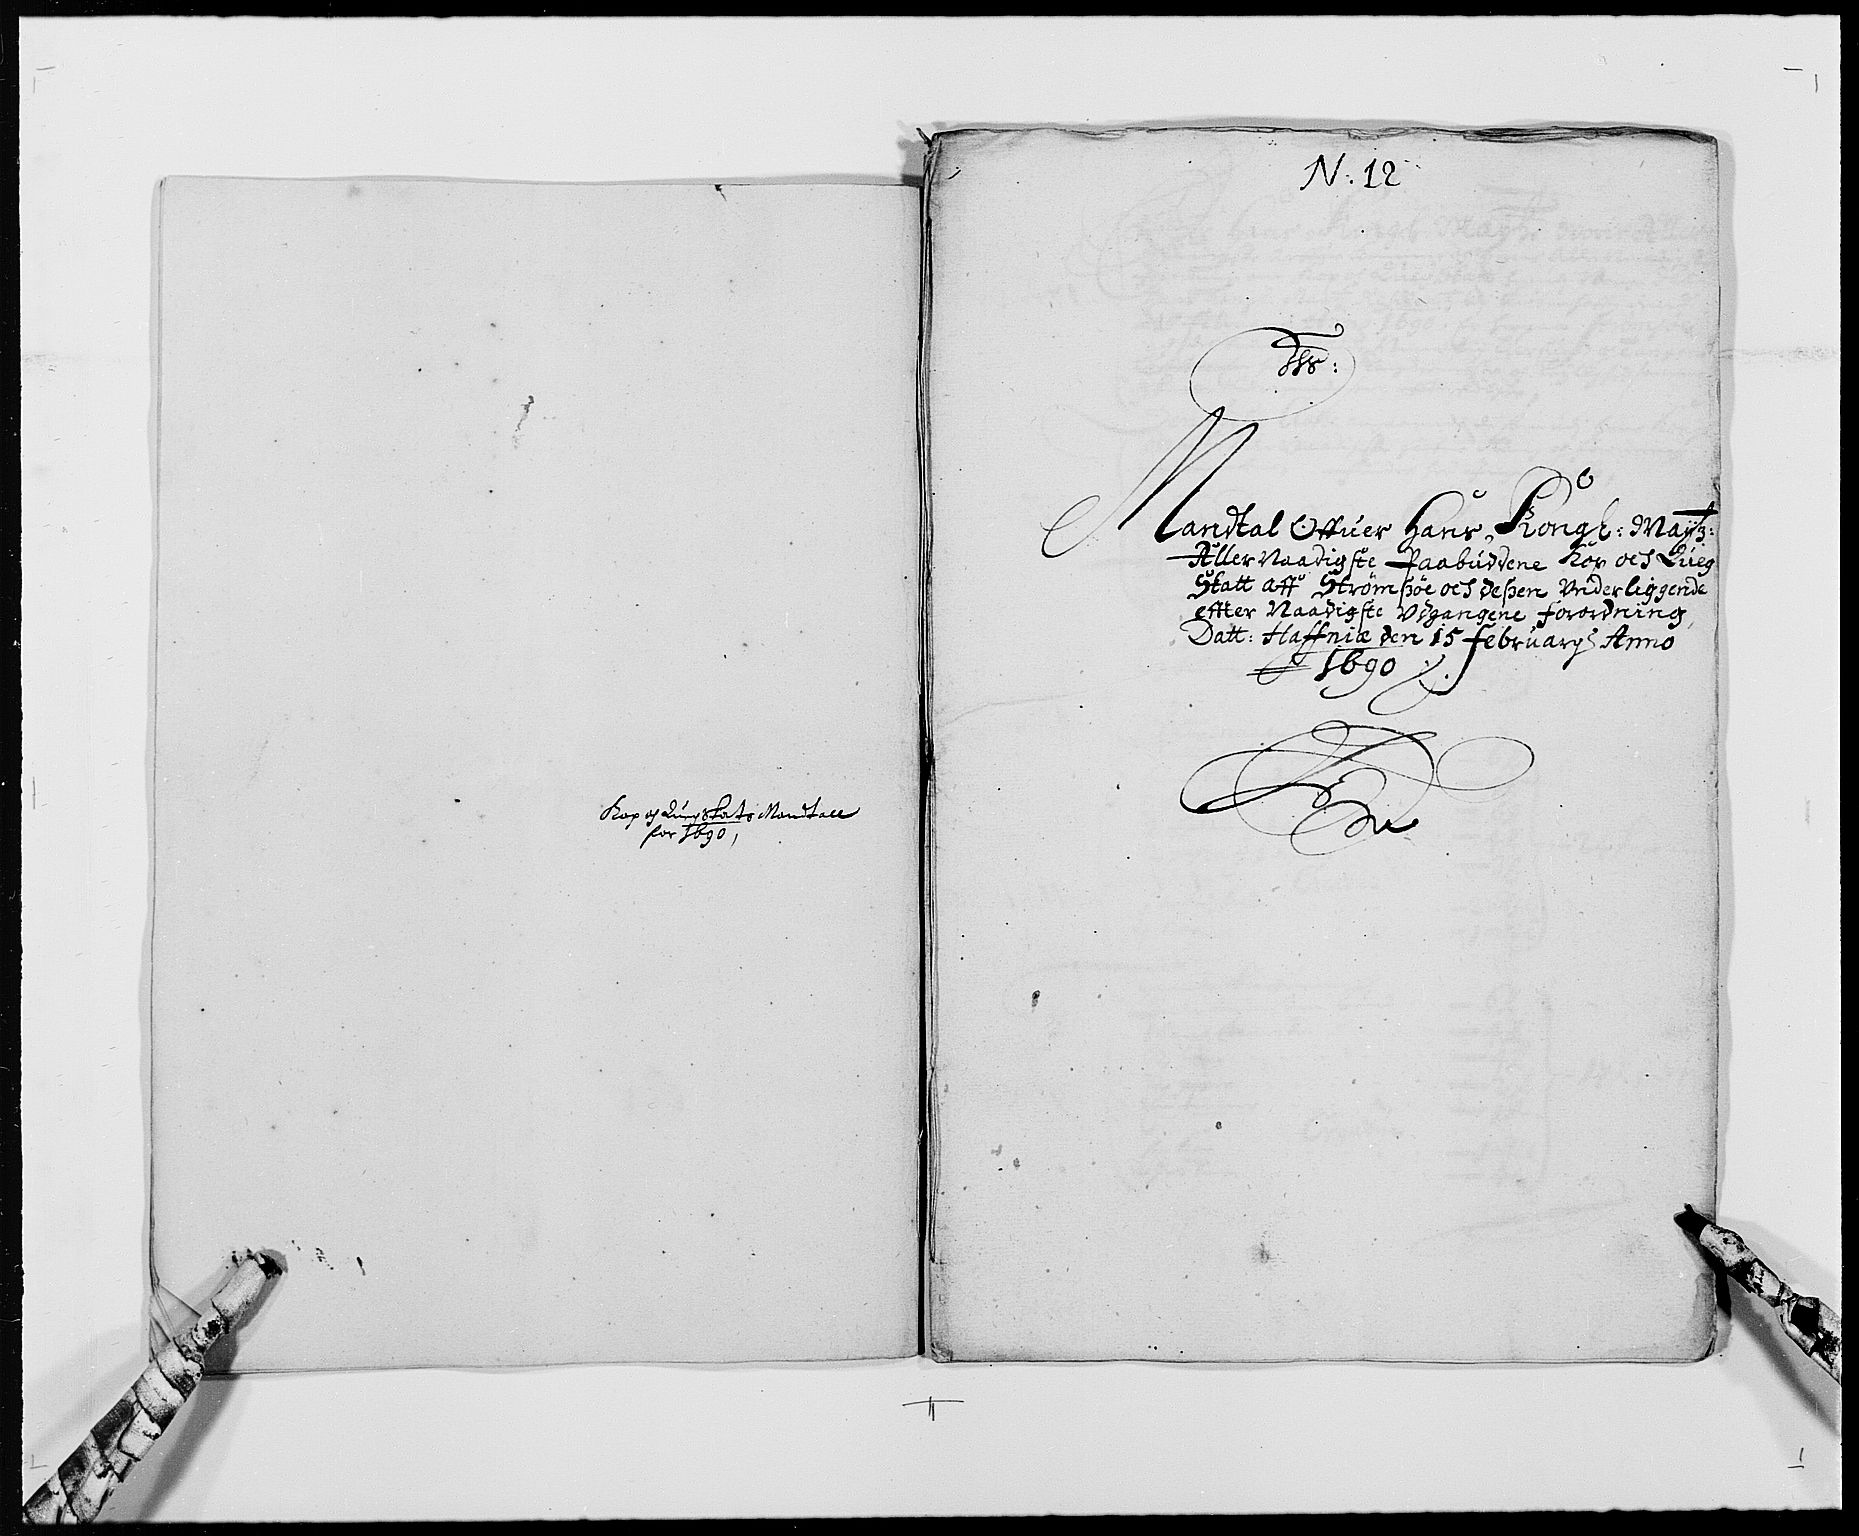 Kop og Quegskats Mandtall
for 1690,
N. 12
Mandtal Offuer Hans Kongl: Mayts:
Aller Naadigste Paabuddene Kop och Queg
Skatt aff Strømsøe och deßen Underliggende
effter Naadigste Udgangene forordning,
Datt: Haffniæ den 15 February Anno
1690